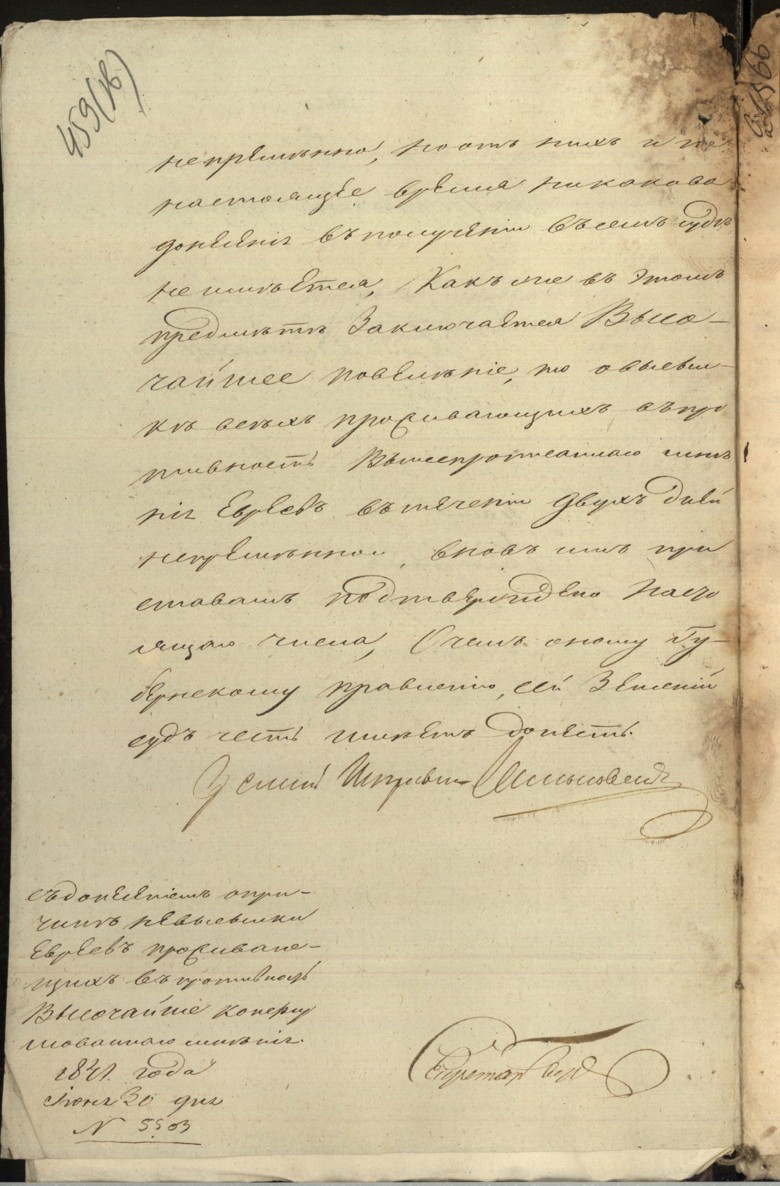 459 (об)
непремѣнно, но отъ нихъ и по
настоящее время никакова
донесенія въ полученіи въ семъ судѣ
не имѣется, Какъ же въ этомъ
предмѣтѣ Заключается Высо-
чайшее повелѣніе, то о высыл-
кѣ всехъ проживающихъ въ про
тивность Вышепрописаннаго мнѣ
нія Евреевъ въ теченіи двухъ дней
непремѣнно, вновь имъ при
ставамъ подтверждено насто
ящаго числа, О чемъ оному Гу-
бернскому правленію, сей Земский
судъ честь имѣетъ донесть.
Земский Исправникъ
съ донесеніемъ о при-
чинѣ невысылки
Евреевъ проживаю-
щихъ въ противность
Высочайше конфир
мованнаго мнѣнія.
1841 года
Іюня 30 дня
N 5503
Секретарь